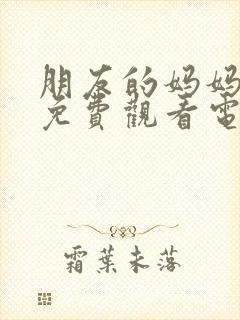 朋友的妈妈
免費觀看電
霜葉未落